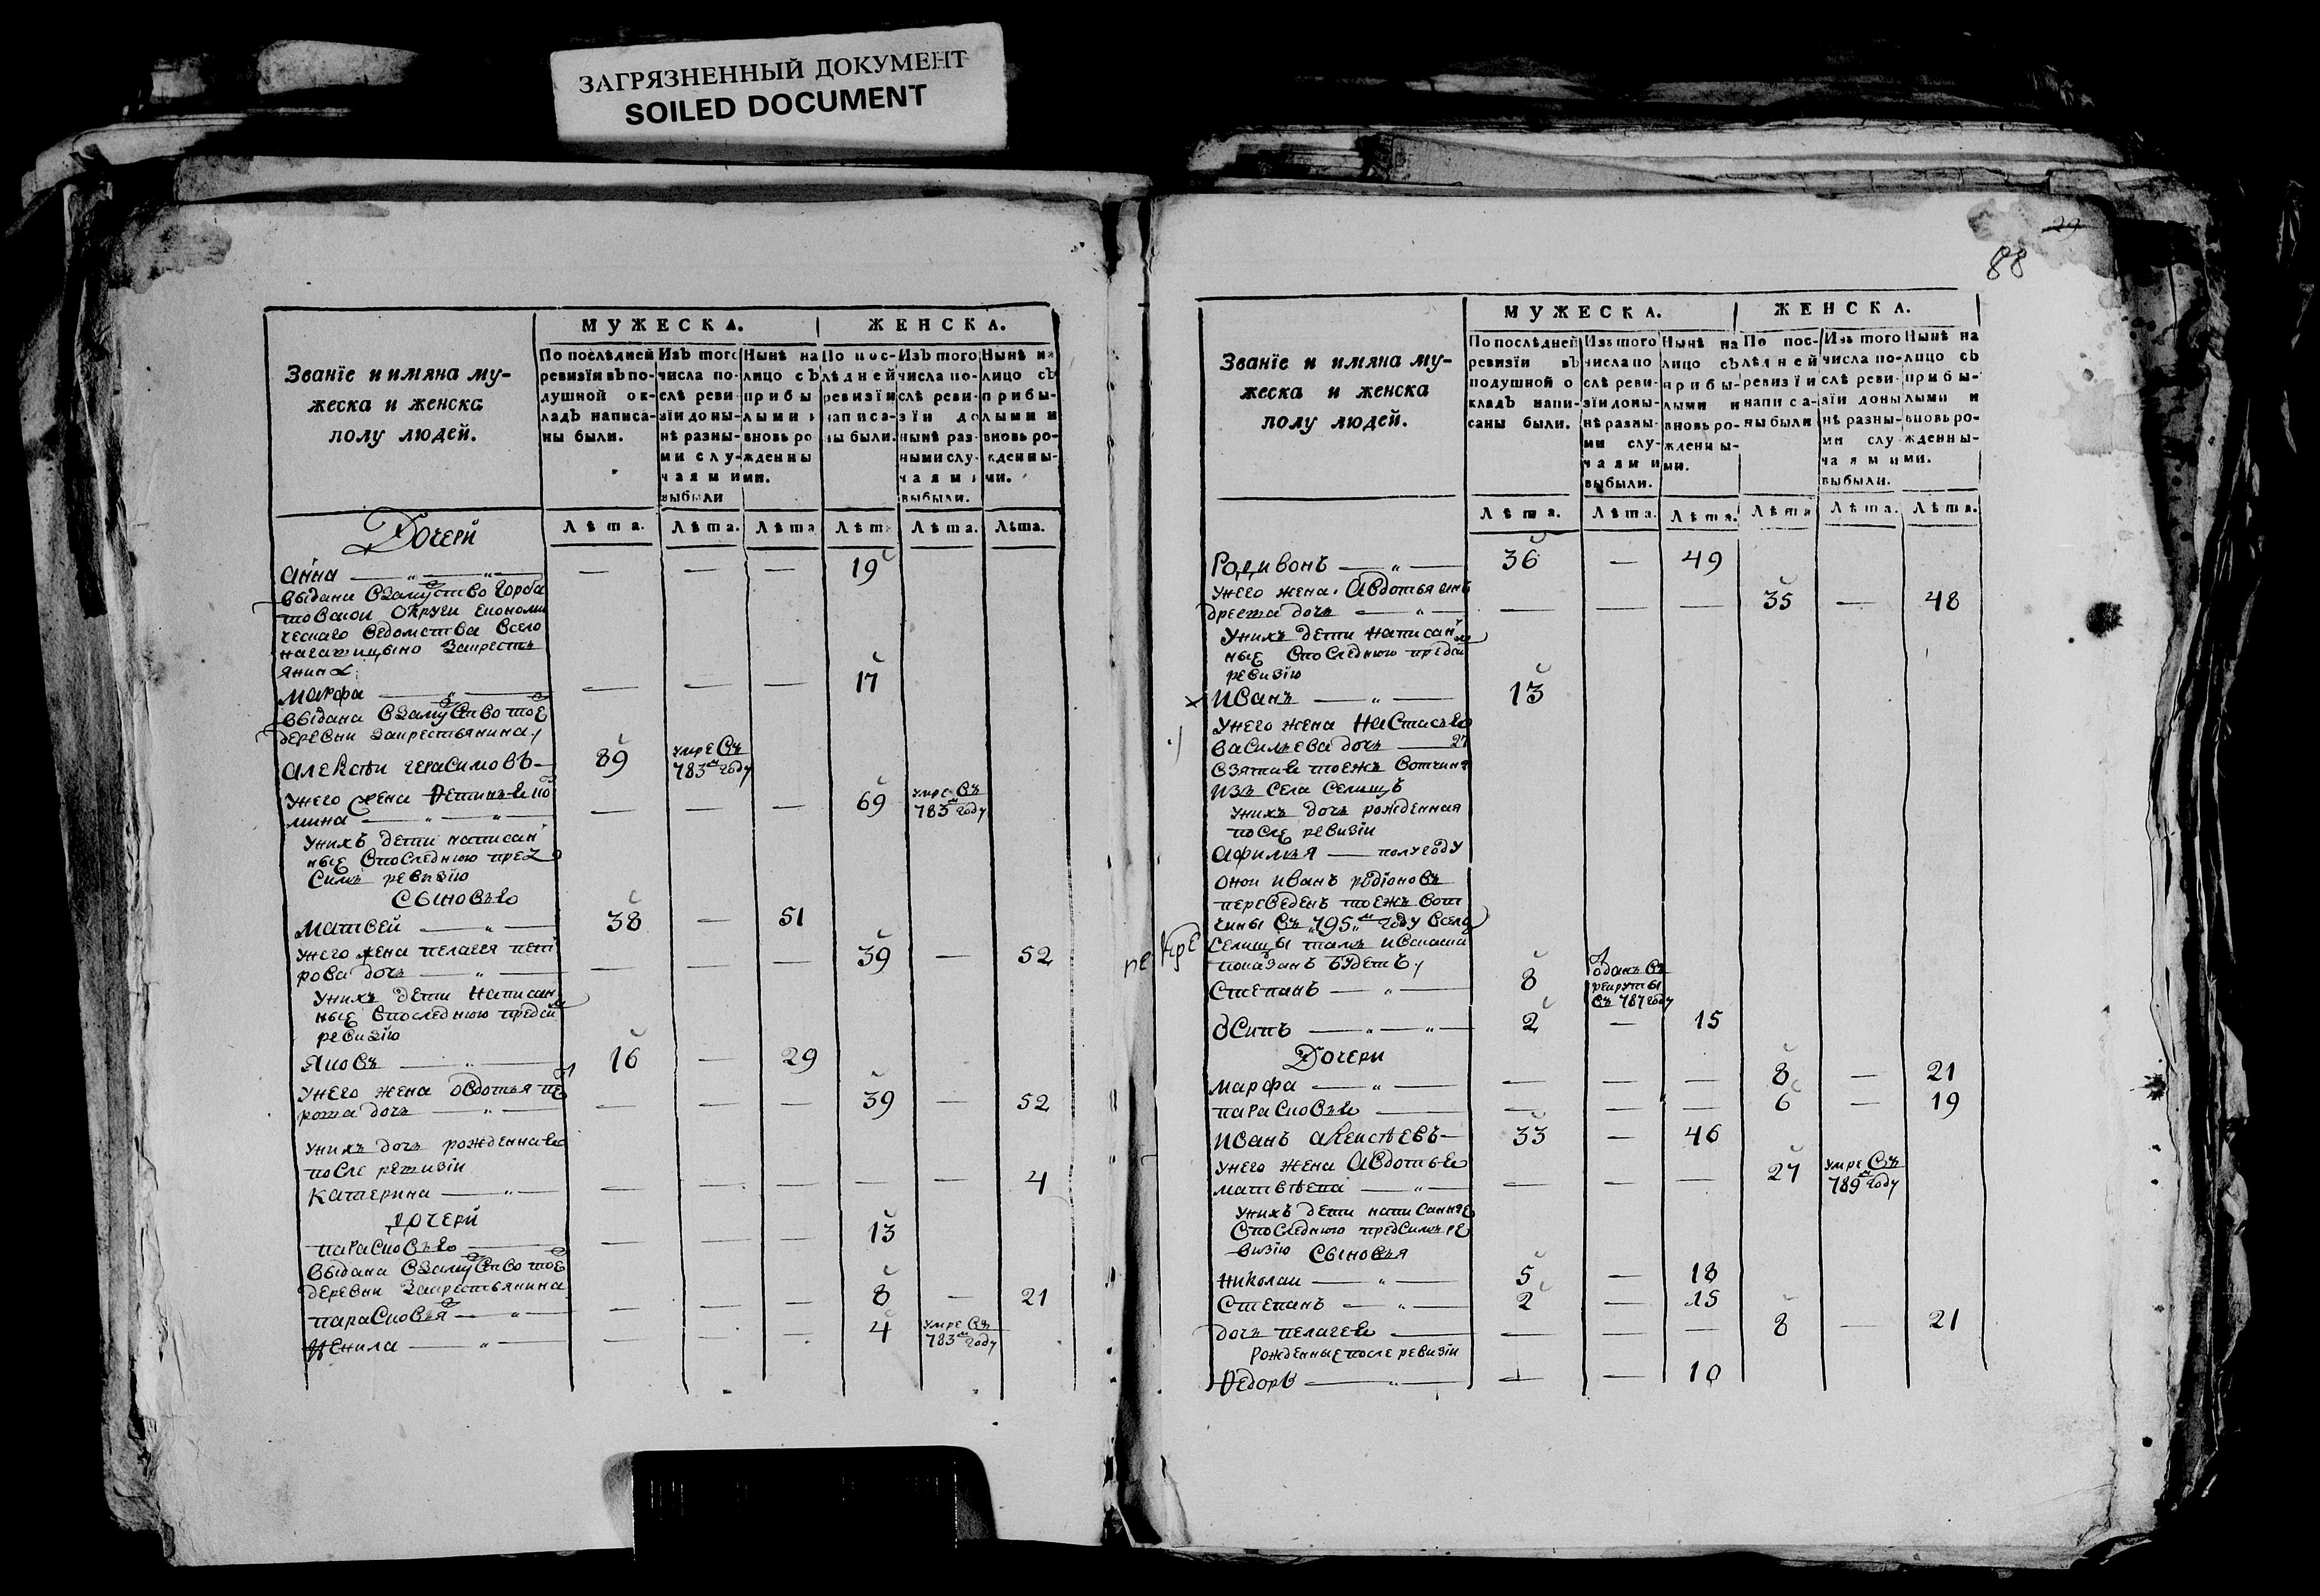 ЗАГРЯЗНЕННЫЙ ДОКУМЕНТ
SOILED DOCUMENT
Званїе и имяна му-
жеска и женска
полу людей.
МУЖЕСКА.
ЖЕНСКА.
По послѣдней ревизїи въ по-душной ок-ладъ написа-ны были.
Изъ того числа по-слѣ реви-зїи доны-нѣ разны-ми слу-чаями выбыли
Нынѣ на лицо съ прибы лыми и вновь ро жденны ми.
По пос-лѣдней ревизїи написа-ны были.
Изъ того числа по-слѣ реви-зїи до нынѣ раз-ными слу-чаями выбыли.
Нынѣ на лицо съ прибы-лыми и вновь ро-жденны-ми.
Лѣта. Лѣта. Лѣта Лѣта Лѣта. Лѣта.
Дочери
Анна — — — — 19
выдана взамуство горба
товской округи економи
ческаго ведомства всело
закрестъ
янина
Марфа — — — — 17
выдана взамуство тоѣ
деревни закрестьянина
Алексѣй герасимовъ — 89 умре въ 783м году
унего жена Фетинья
мина — — — — 69 умре въ 783м году
унихъ дети написан
ные впоследнюю пред
симъ ревизїю
сыновья
Матвей — 38 — 51
унего жена пелагея пет
рова дочь — — — — 39 — 52
унихъ дети написан
ные впоследнюю предсим
ревизїю
Яковъ — 16 — 29
унего жена овдотья пе
рова дочь — — — — 39 — 52
унихъ дочь рожденная
после ревизїи
Катерина — — — — — — 4
дочери
парасковья — — — — 13
выдана взамуство тоѣ
деревни закрестьянина
парасковья — — — — 8 — 21
Ненила — — — — 4 умре въ 783м году
29
88
Званїе и имяна му-
жеска и женска
полу людей.
МУЖЕСКА.
ЖЕНСКА.
По послѣдней ревизїи въ подушной о кладъ напи-саны были.
Изъ того числа по слѣ реви-зїи доны-нѣ разны-ми слу-чаями выбыли.
Нынѣ на лицо съ прибы-лыми и вновь ро-жденны-ми.
По пос-лѣдней ревизїи написа-ны были
Изъ того числа по-слѣ реви-зїи доны нѣ разны-ми слу-чаями выбыли.
Нынѣ на лицо съ прибы-лыми и вновь ро-жденны-ми.
Лѣта. Лѣта. Лѣта. Лѣта Лѣта. Лѣта.
Родивонъ — 36 — 49
унего жена Авдотья ан
дреева дочь — — — — 35 — 48
унихъ дети написан
ные впоследнюю предсим
ревизїю
Иванъ — 13
унего жена Настасья
васильева дочь — 27
взятая тоежъ вотчины
изъ села селищъ
унихъ дочь рожденная
после ревизїи
Афимья — полугоду
оной иванъ родїоновъ
переведенъ тоежъ вот
чины въ 795м году всело
селищы тамъ
показанъ будетъ
Степанъ — 8 отданъ въ рекруты въ 787 году
Осипъ — 2 — 15
Дочери
Марфа — — — — 8 — 21
парасковья — — — — 6 — 19
Иванъ алексѣевъ — 33 — 46
унего жена Авдотья
матвѣева — — — — 27 умре въ 789м году
унихъ дети написанные
впоследнюю предсимъ ре
визїю сыновья
Николай — 5 — 18
Степанъ — 2 — 15
дочь пелагея — — — — 8 — 21
рожденные после ревизїи
Федоръ — — — 10